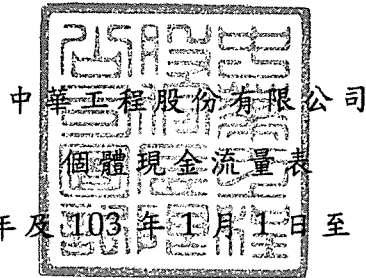 中華工程股份有限公司
個體現金流量表
年及 103 年 1 月 1 日至